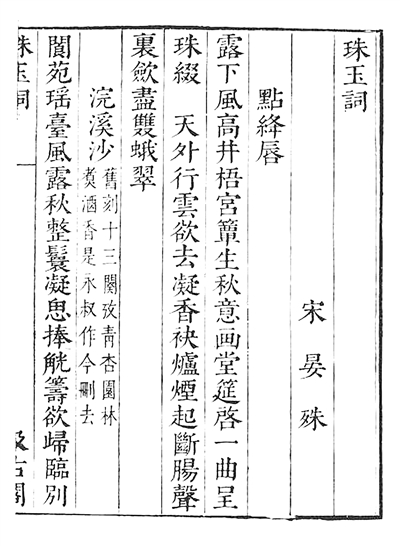 珠玉詞
宋 晏 殊
點絳唇
露下風高井梧宮簟生秋意画堂筵啓一曲呈
珠綴 天外行雲欲去凝香袂爐煙起斷腸聲
裏歛盡雙蛾翠
浣溪沙 舊刻十三闋攷青杏園林
煮酒香是永叔作今刪去
閬苑瑶臺風露秋整鬟凝思捧觥籌欲歸臨別
珠玉詞 一 汲古閣